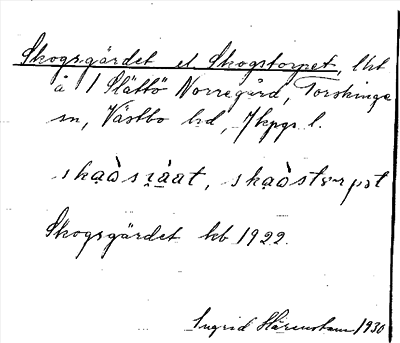 Skogsgärdet el Skogstorpet, lht
å 1 Slättö Norregård, Torskinge
sn, Västbo hd, Jkpgs l.
skaɷ̀sɪ̯áat, skaɷ̀stɤrpət
Skogsgärdet kb 1922.
Ingrid Härenstam 1930